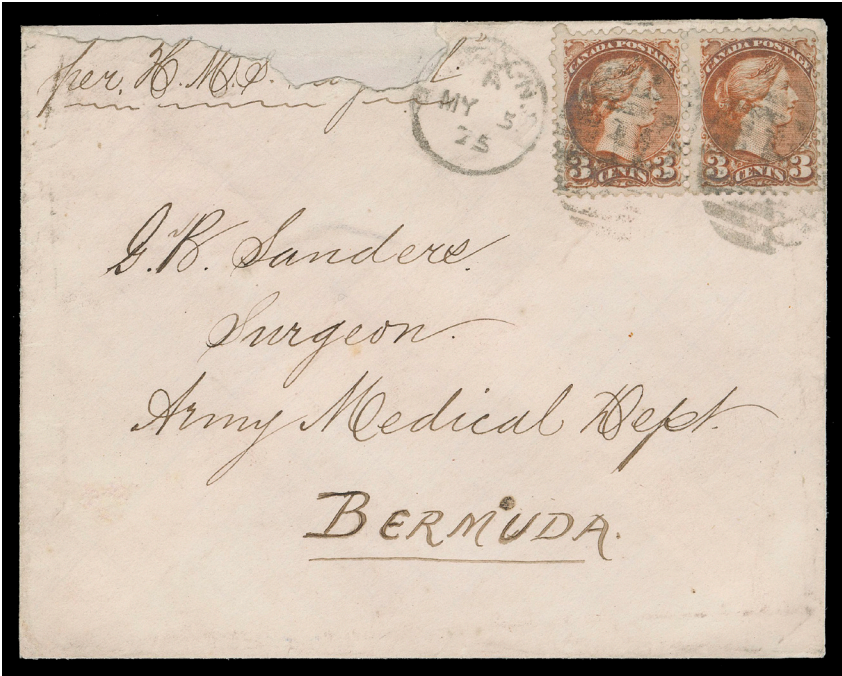 per. H. M. S.
X. N. S.
A
MY 5
75
CANADA POSTAGE
3 CENTS 3
CANADA POSTAGE
3 CENTS 3
G. R. Sanders.
Surgeon.
Army Medical Dept.
BERMUDA.